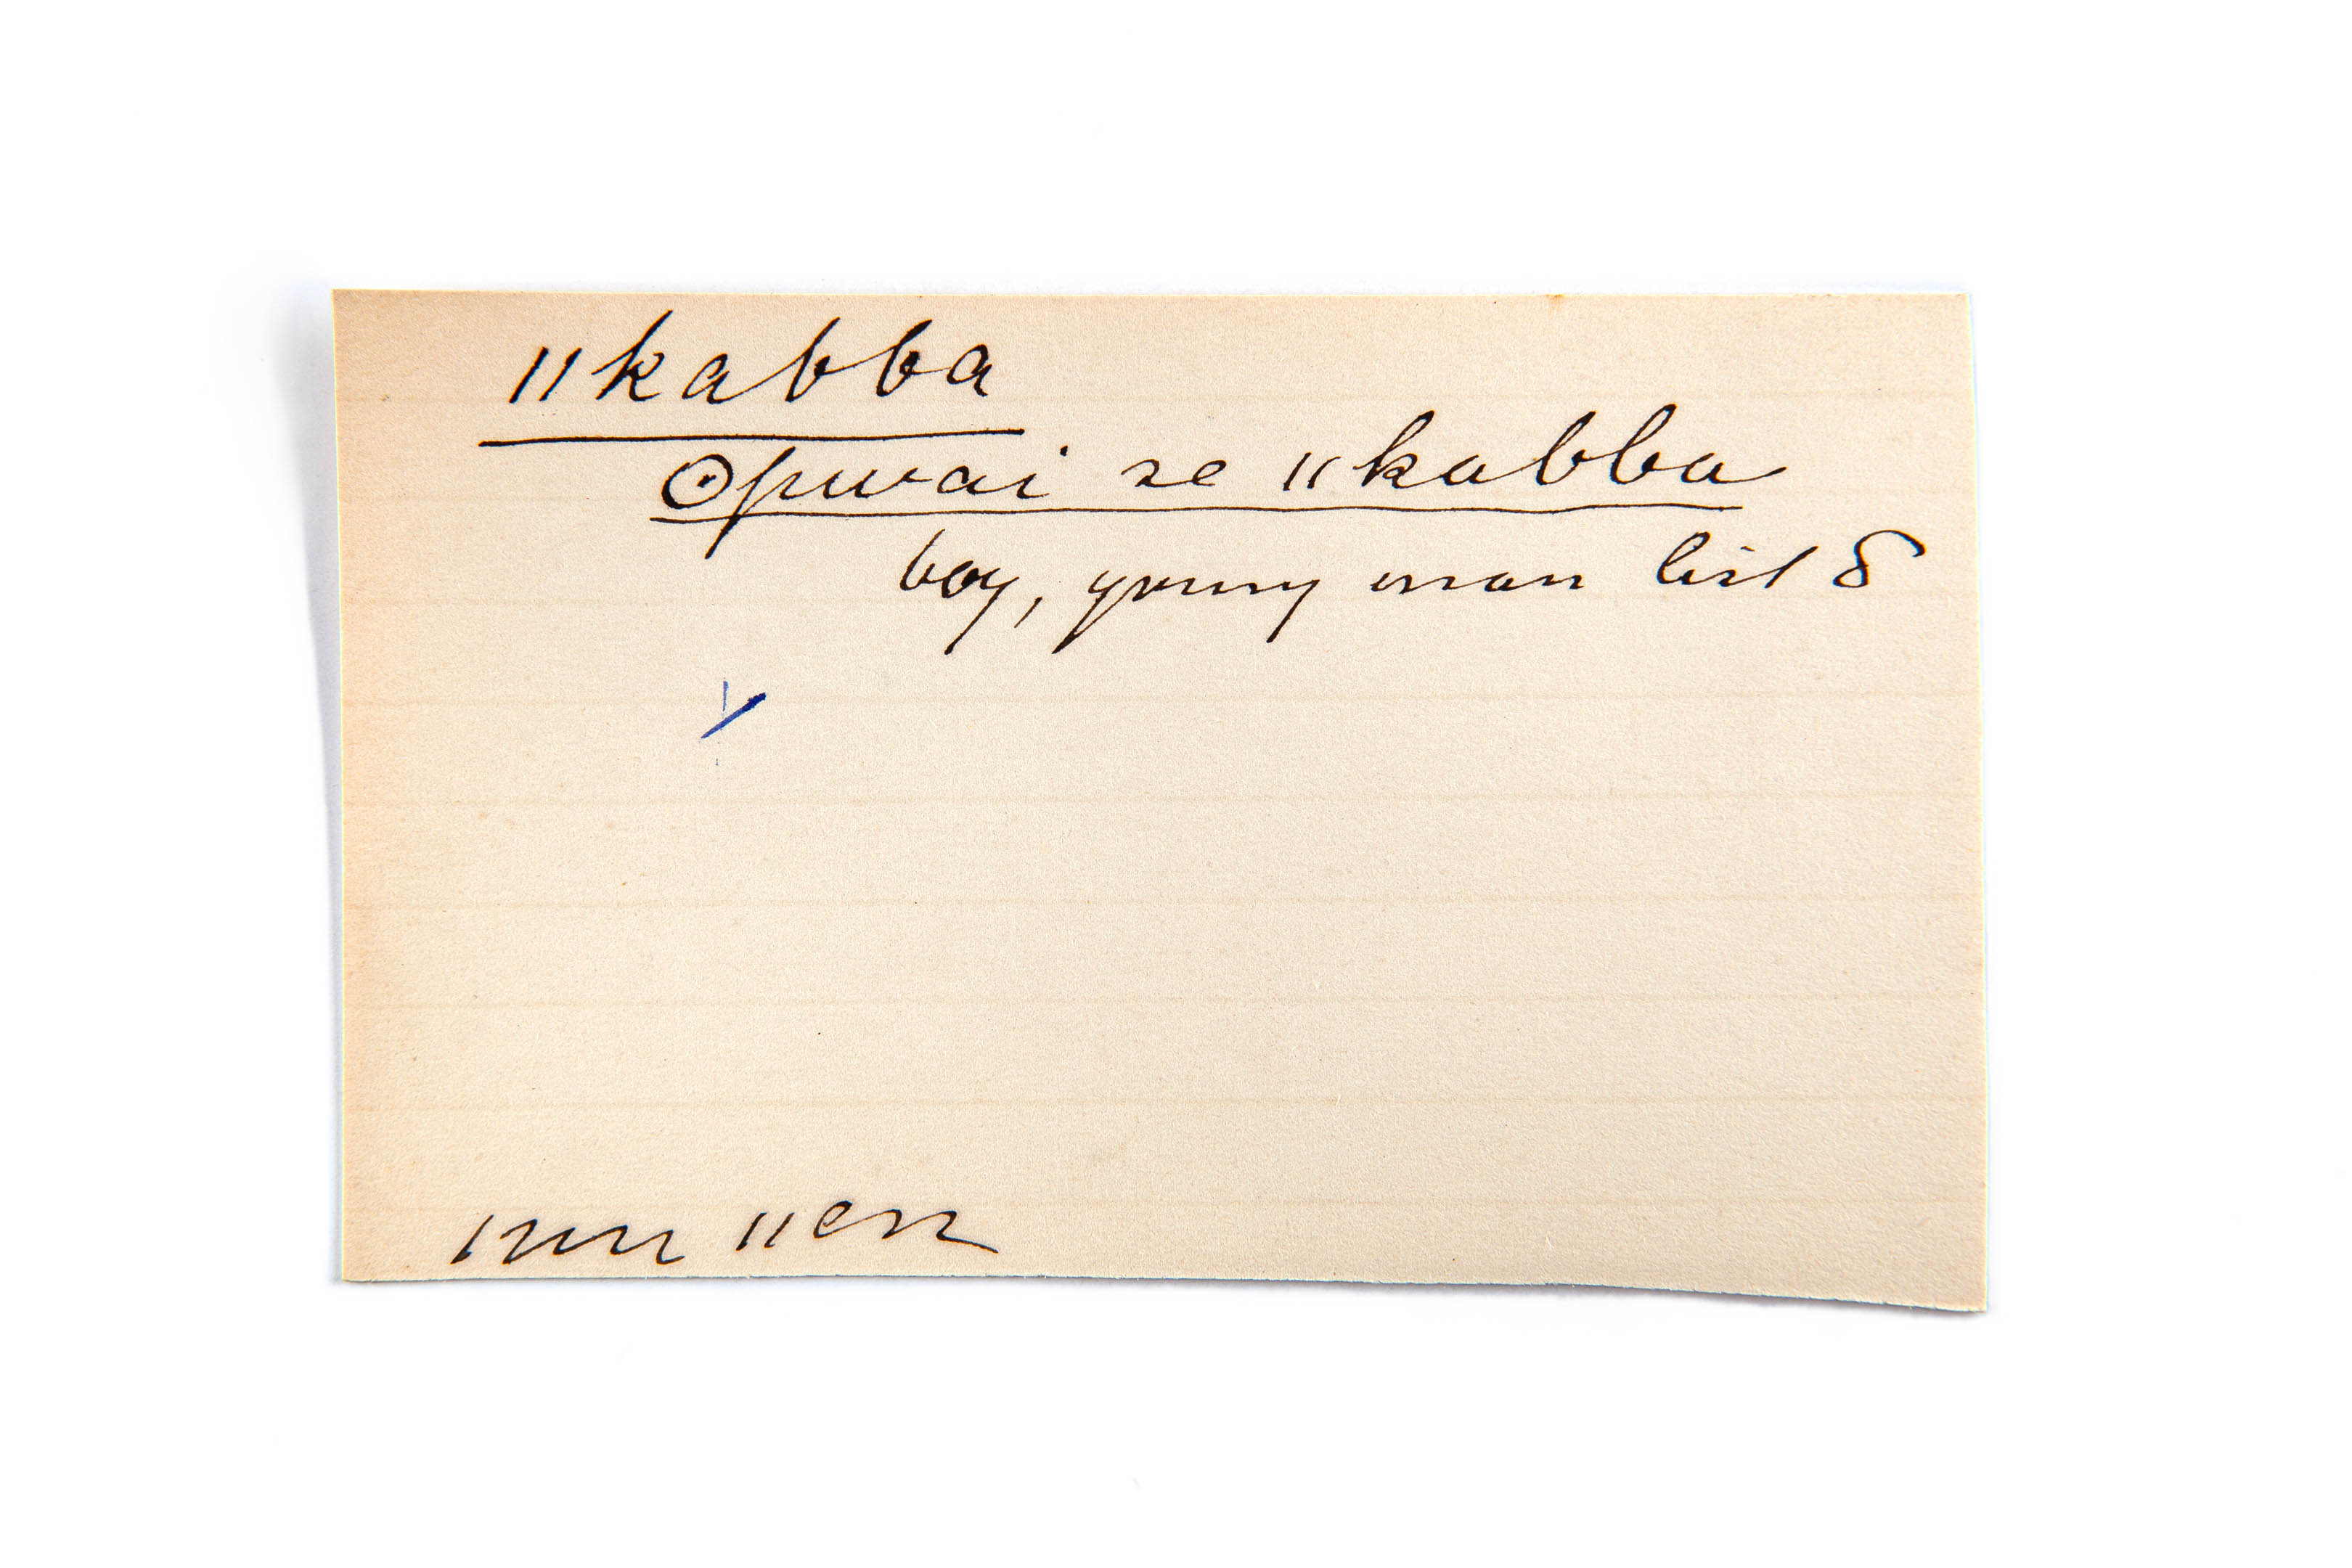 ǁkabba
ʘpwai se ǁkabba
boy, young man list 8
ǀnuu ǁen